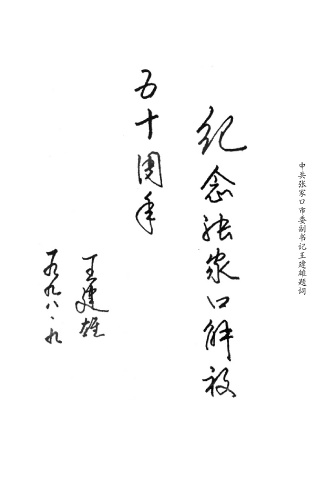 中共张家口市委副书记王建雄题词
纪念张家口解放
五十周年
王建雄
一九九八·九